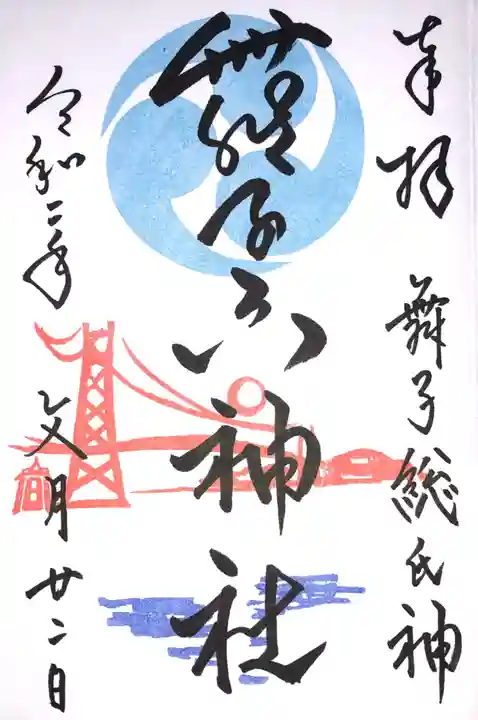 奉拝 舞子総氏神
舞子六神社
令和二年 文月廿二日